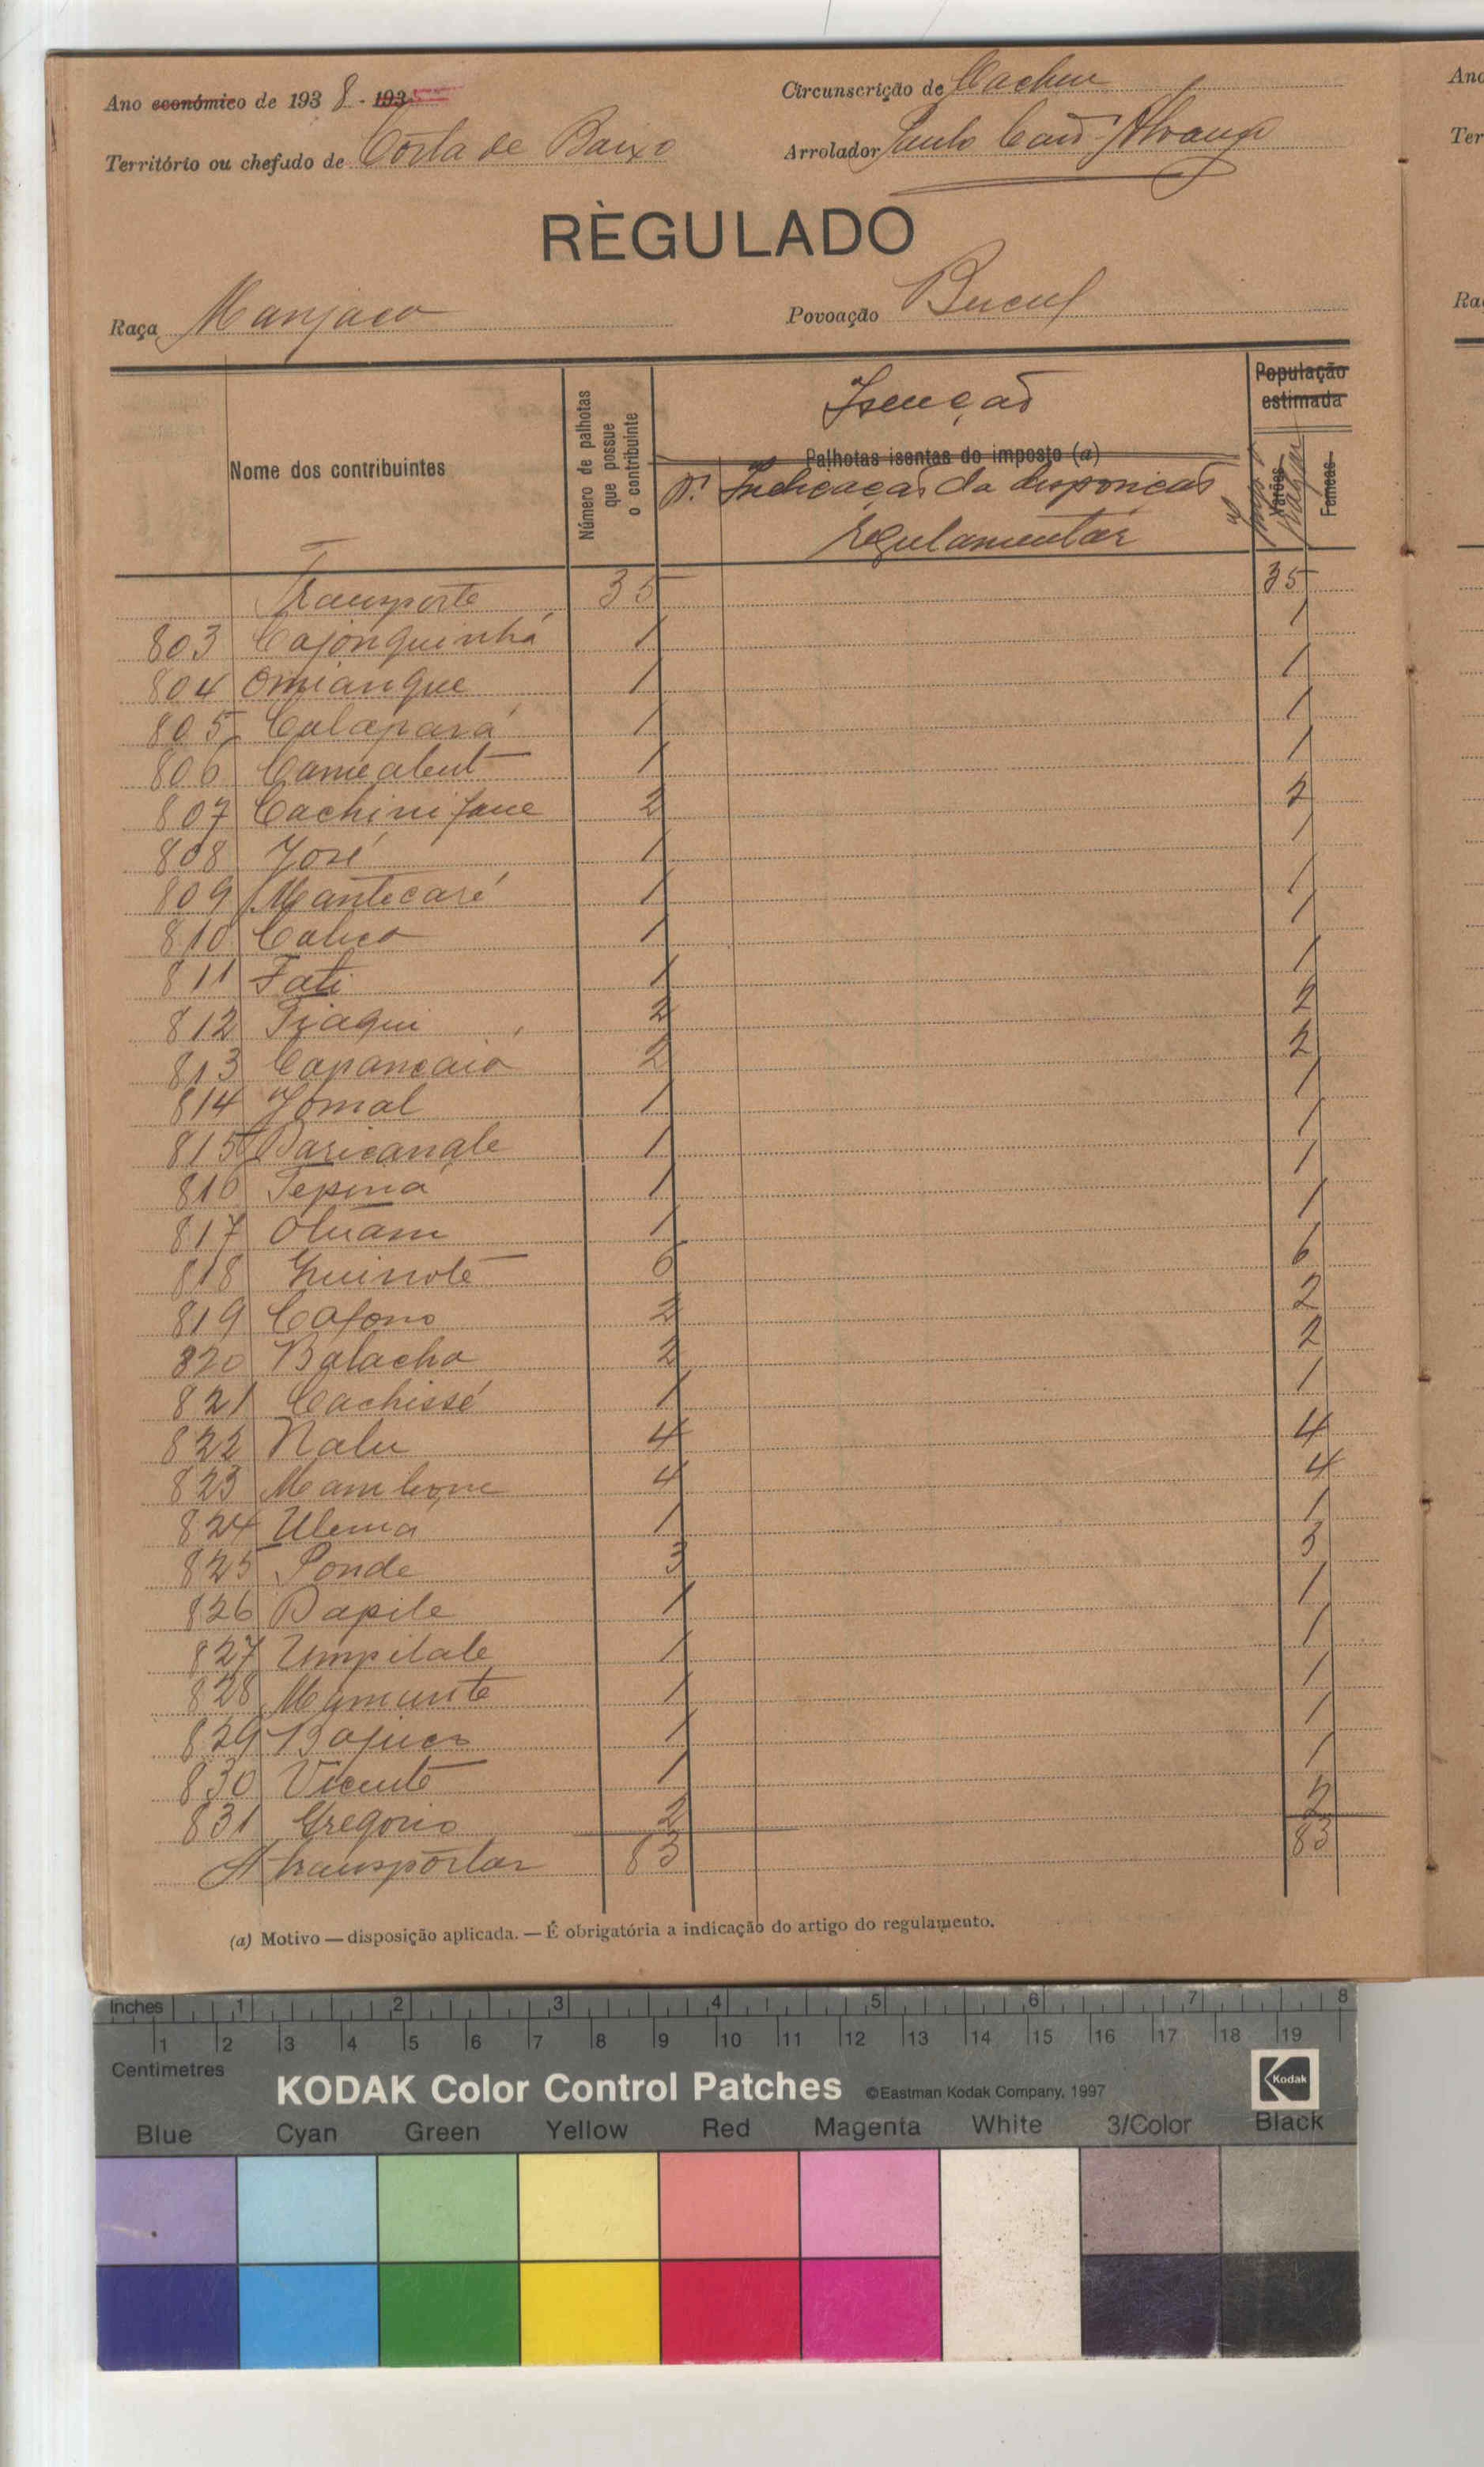 Ano económico de 193 8 - 193
Circunscrição de Cacheu
Território ou chefado de Costa de Baixo
Arrolador Paulo
RÈGULADO
Raça Manjaco
Povoação Bucul
Nome dos contribuintes
Número de palhotas que possue o contribuinte
Isenção
Palhotas isentas do imposto (a)
N.º Indicação da disposição
regulamentar
População estimada
Varões
Femeas
Transporte 35 35
803 Cajonquinhá 1 1
804 Omianque 1 1
805 Calapará 1 1
806 Cameabut 1 1
807 Cachinifane 2 2
808 José 1 1
809 Mantecaré 1 1
810 Calico 1 1
811 Fati 1 1
812 Tiaqui 2 2
813 Capancaió 2 2
814 Jomal 1 1
815 Baricanale 1 1
816 Tepiná 1 1
817 Oluam 1 1
818 Guinoté 6 6
819 Cafono 2 2
820 Balacha 2 2
821 Cachissé 1 1
822 Nalu 4 4
823 Mambone 4 4
824 Ulemá 1 1
825 Ponde 3 3
826 Bapile 1 1
827 Umpilale 1 1
828 Mamunte 1 1
829 Bajuco 1 1
830 Vicente 1 1
831 Gregorio 2 2
A transportar 83 83
(a) Motivo — disposição aplicada. — É obrigatória a indicação do artigo do regulamento.
Inches 1 2 3 4 5 6 7 8
1 2 3 4 5 6 7 8 9 10 11 12 13 14 15 16 17 18 19
Centimetres
KODAK Color Control Patches ©Eastman Kodak Company, 1997 Kodak
Blue Cyan Green Yellow Red Magenta White 3/Color Black